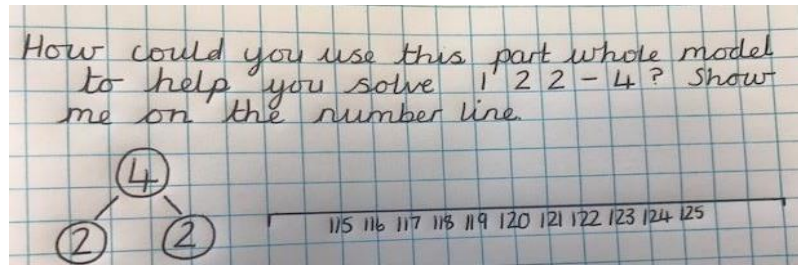 How could you use this part whole model
to help you solve 1 2 2 - 4 ? Show
me on the number line.
4
2 2
115 116 117 118 119 120 121 122 123 124 125